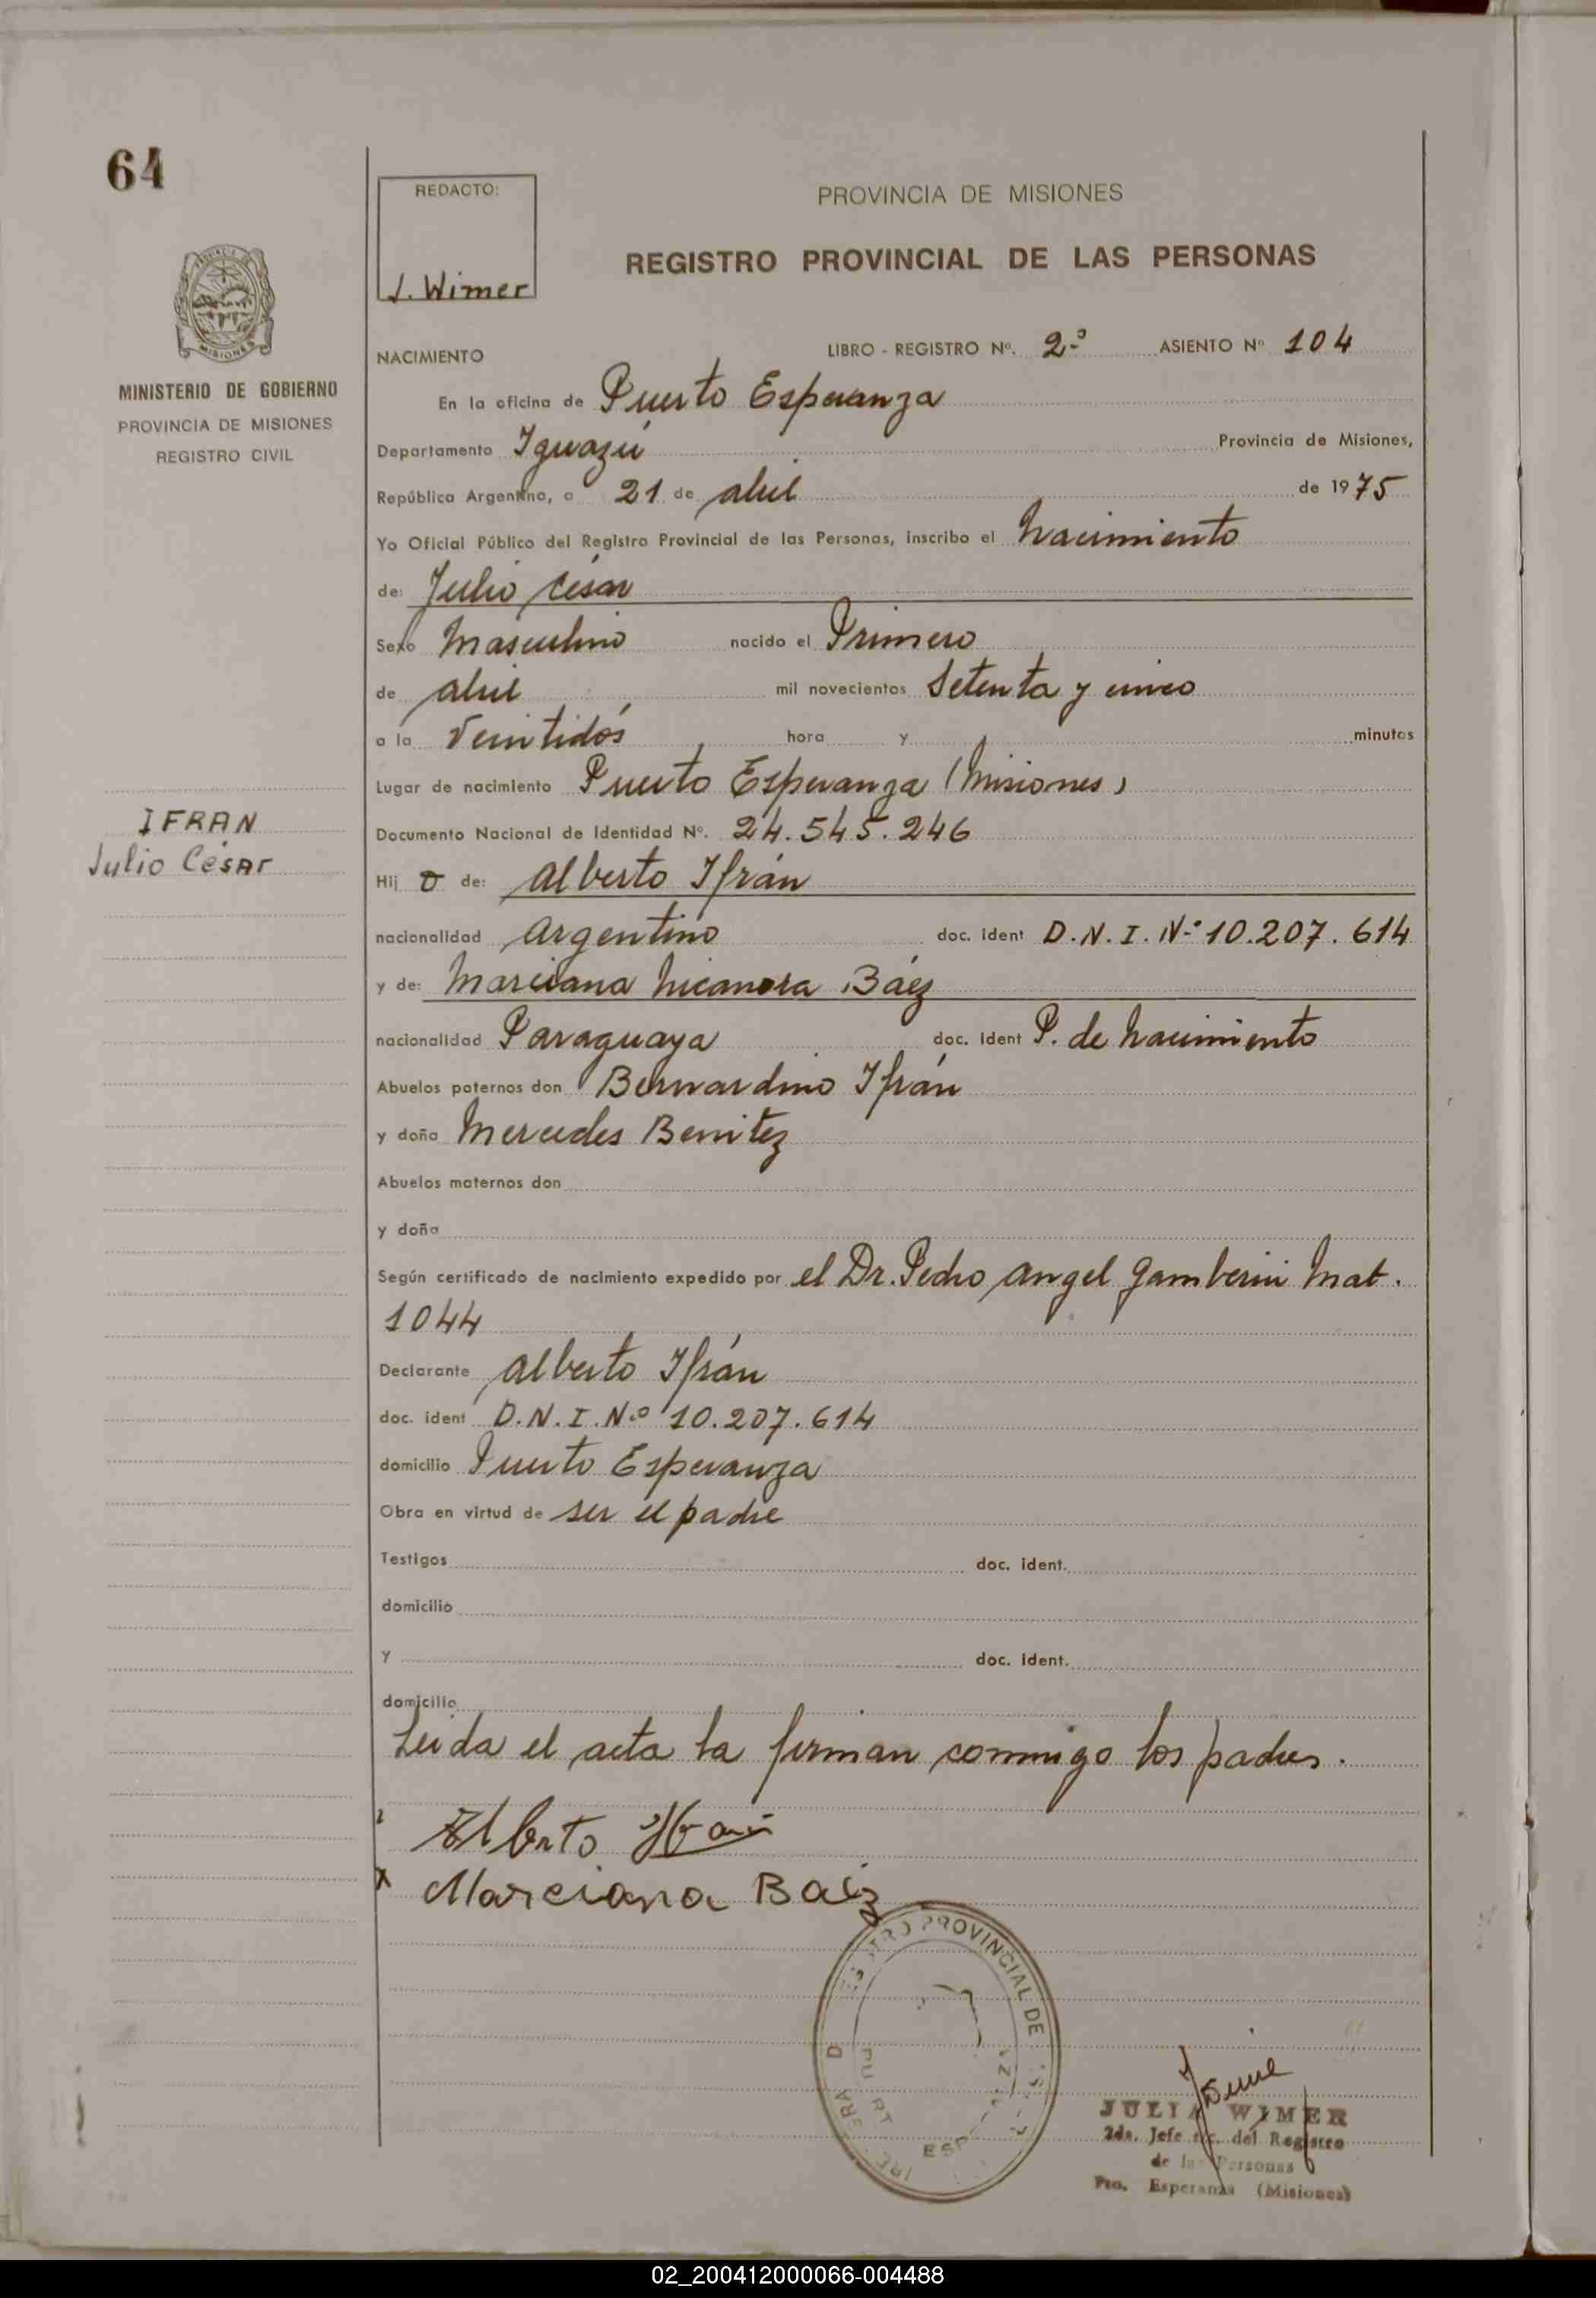 64
REDACTO:
J. Wimer
PROVINCIA DE MISIONES
REGISTRO PROVINCIAL DE LAS PERSONAS
MISIONES
MINISTERIO DE GOBIERNO
PROVINCIA DE MISIONES
REGISTRO CIVIL
NACIMIENTO
LIBRO - REGISTRO Nº. 2º ASIENTO Nº 104
En la oficina de Puerto Esperanza
Departamento Iguazú Provincia de Misiones,
República Argentina, a 21 de abril de 1975
Yo Oficial Público del Registro Provincial de las Personas, inscribo el Nacimiento
de: Julio César
Sexo Masculino nacido el Primero
de abril mil novecientos Setenta y cinco
a la Veintidós hora y minutos
Lugar de nacimiento Puerto Esperanza (Misiones)
IFRAN
Julio César
Documento Nacional de Identidad Nº. 24.545.246
Hij o de: Alberto Ifrán
nacionalidad Argentino doc. ident D.N.I. Nº 10.207.614
y de: Marciana Nicanora Báez
nacionalidad Paraguaya doc. ident P. de Nacimiento
Abuelos paternos don Bernardino Ifrán
y doña Mercedes Benitez
Abuelos maternos don
y doña
Según certificado de nacimiento expedido por el Dr. Pedro Angel Gamberini Mat.
1044
Declarante Alberto Ifrán
doc. ident D.N.I. Nº 10.207.614
domicilio Puerto Esperanza
Obra en virtud de ser el padre
Testigos doc. ident.
domicilio
y doc. ident.
domicilio
Leida el acta la firman conmigo los padres.
Alberto Ifran
x Marciana Baéz
PROVINCIAL DE
ESP
JULIA WIMER
2da. Jefe del Registro
de las Personas
Pto. Esperanza (Misiones)
02_200412000066-004488